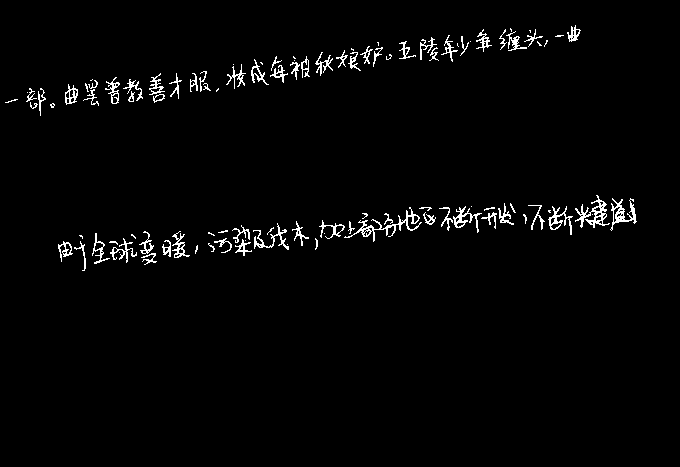 一部。曲罢曾教善才服,妆成每被秋娘妒。五陵年少争缠头,一曲
由于全球变暖,污染及伐木,加上部分地区不断开发,不断兴建道